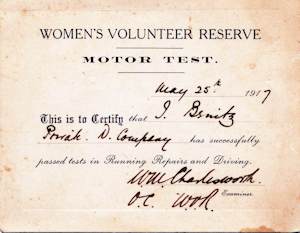 WOMEN'S VOLUNTEER RESERVE
MOTOR TEST.
May 25th 1917
This is to Certify that I. Benitz
D. Company has successfully
passed tests in Running Repairs and Driving.
WM Charlesworth
Examiner.
O.C.